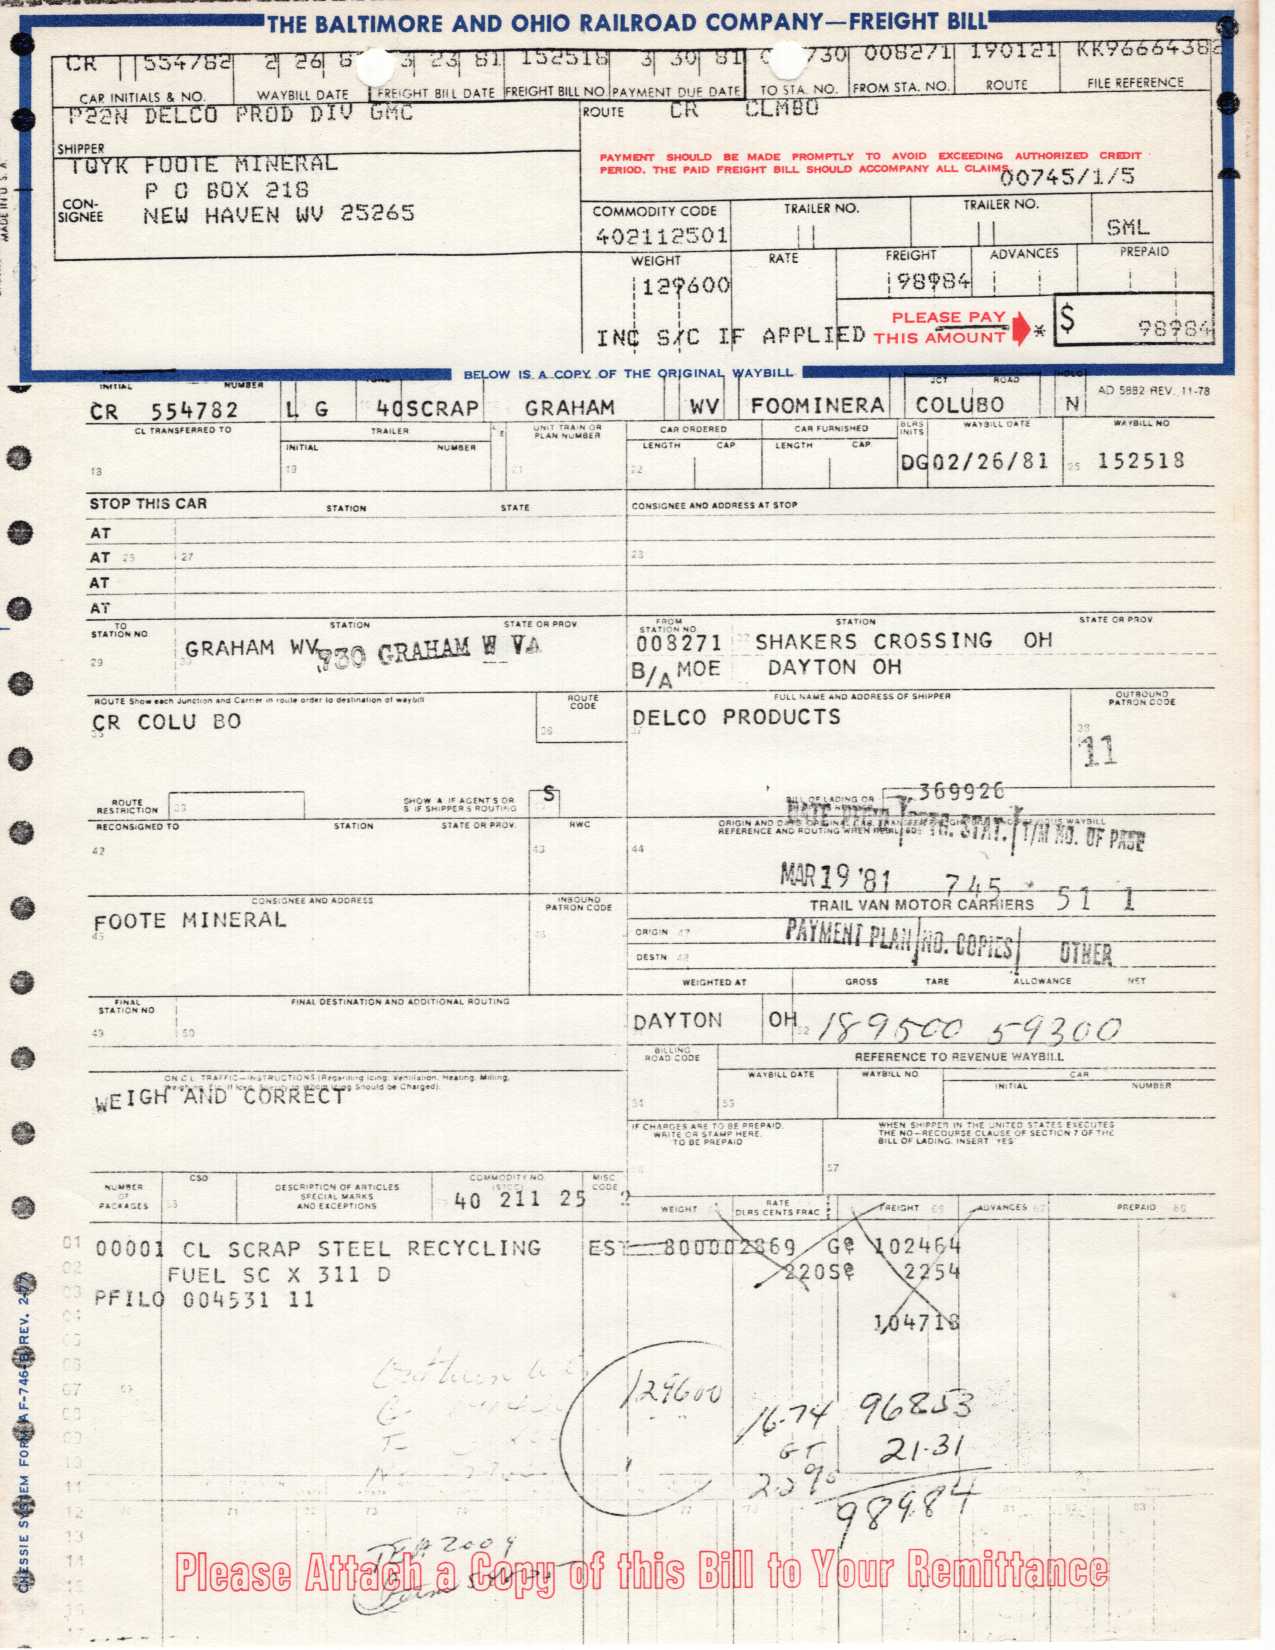 THE BALTIMORE AND OHIO RAILROAD COMPANY—FREIGHT BILL
CR 554782 2 26 8 3 23 81 152518 3 30 81 730 008271 190121 KK96664382
CAR INITIALS & NO. WAYBILL DATE FREIGHT BILL DATE FREIGHT BILL NO PAYMENT DUE DATE TO STA. NO. FROM STA. NO. ROUTE FILE REFERENCE
P22N DELCO PROD DIV GMC
SHIPPER
ROUTE CR CLMBO
TQYK FOOTE MINERAL
P O BOX 218
CON-
SIGNEE
NEW HAVEN WV 25265
PAYMENT SHOULD BE MADE PROMPTLY TO AVOID EXCEEDING AUTHORIZED CREDIT
PERIOD. THE PAID FREIGHT BILL SHOULD ACCOMPANY ALL CLAIMS
00745/1/5
COMMODITY CODE TRAILER NO. TRAILER NO.
402112501 SML
WEIGHT RATE FREIGHT ADVANCES PREPAID
129600 98984
INC S/C IF APPLIED
PLEASE PAY
THIS AMOUNT * $ 98984
BELOW IS A COPY OF THE ORIGINAL WAYBILL
INITIAL NUMBER JCT ROAD
AD 5882 REV. 11-78
CR 554782 L G 40SCRAP GRAHAM WV FOOMINERA COLUBO N
CL TRANSFERRED TO TRAILER UNIT TRAIN OR PLAN NUMBER CAR ORDERED CAR FURNISHED BLRS INITS WAYBILL DATE WAYBILL NO
INITIAL NUMBER LENGTH CAP. LENGTH CAP.
18 19 21 22 DG 02/26/81 25 152518
STOP THIS CAR STATION STATE CONSIGNEE AND ADDRESS AT STOP
AT
AT 27
AT
AT
TO STATION NO STATION STATE OR PROV FROM STATION NO STATION STATE OR PROV
29 GRAHAM WV 930 GRAHAM W VA 008271 SHAKERS CROSSING OH
B/A MOE DAYTON OH
ROUTE Show each Junction and Carrier in route order to destination of waybill ROUTE CODE FULL NAME AND ADDRESS OF SHIPPER OUTBOUND PATRON CODE
CR COLU BO DELCO PRODUCTS
11
ROUTE RESTRICTION SHOW A IF AGENTS OR S IF SHIPPERS ROUTING S 369926
RECONSIGNED TO STATION STATE OR PROV. RWC
42 43 44
T/M NO. OF PAGE
MAR 19 '81 745 51 1
TRAIL VAN MOTOR CARRIERS
CONSIGNEE AND ADDRESS INBOUND PATRON CODE
FOOTE MINERAL
ORIGIN 47
PAYMENT PLAN NO. COPIES OTHER
DESTN
WEIGHTED AT GROSS TARE ALLOWANCE NET
FINAL STATION NO FINAL DESTINATION AND ADDITIONAL ROUTING
49 50
DAYTON OH 52 189500 59300
BILLING ROAD CODE REFERENCE TO REVENUE WAYBILL
WAYBILL DATE WAYBILL NO CAR
INITIAL NUMBER
ON C.L. TRAFFIC—INSTRUCTIONS (Regarding Icing, Ventilation, Heating, Milling,
WEIGH AND CORRECT
IF CHARGES ARE TO BE PREPAID,
WRITE OR STAMP HERE,
TO BE PREPAID
WHEN SHIPPER IN THE UNITED STATES EXECUTES
THE NO—RECOURSE CLAUSE OF SECTION 7 OF THE
BILL OF LADING, INSERT "YES"
57
NUMBER OF PACKAGES CSD DESCRIPTION OF ARTICLES SPECIAL MARKS AND EXCEPTIONS COMMODITY NO. MISC CODE
40 211 25 2
WEIGHT RATE DLRS CENTS FRAC FREIGHT ADVANCES PREPAID
01 00001 CL SCRAP STEEL RECYCLING EST 80000 2869 GC 102464
02 FUEL SC X 311 D 220SC 2254
PFILO 004531 11
104718
129600 16.74 96853
GT 21.31
2.2% 98984
Please Attach a Copy of this Bill to Your Remittance
CHESSIE SYSTEM FORM AF-746-B REV. 2-77
MADE IN U.S.A.